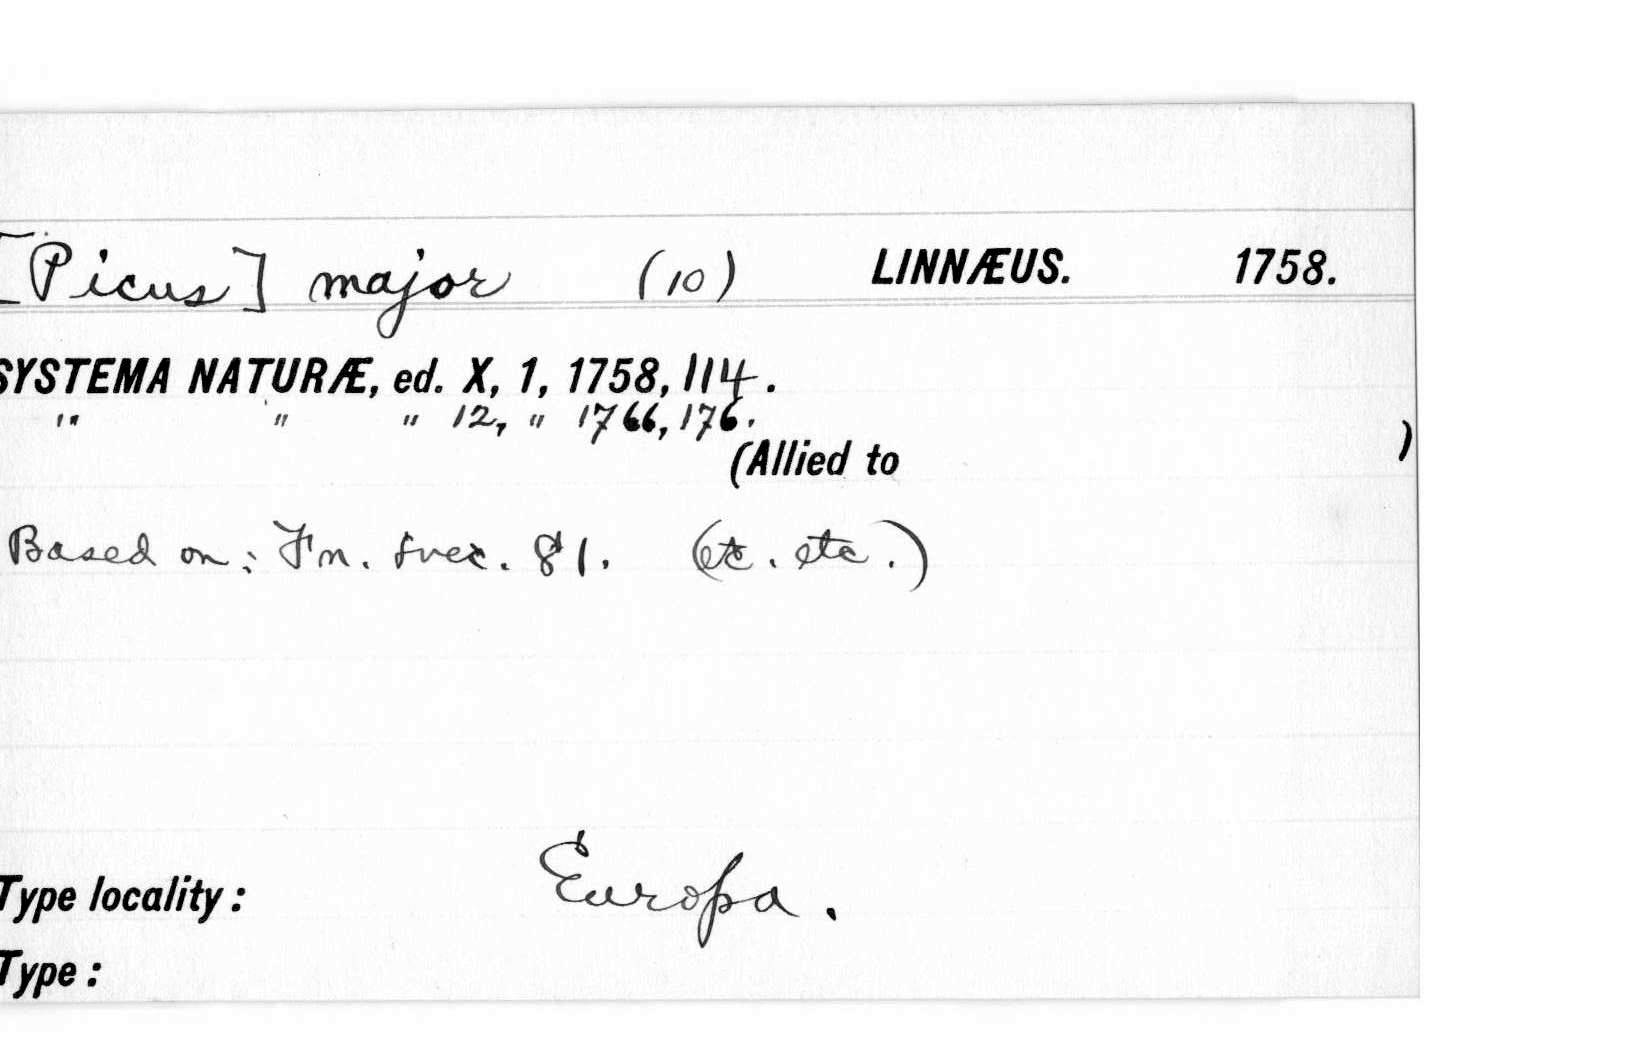 [Picus] major (10) LINNÆUS. 1758.
SYSTEMA NATURÆ, ed. X, 1, 1758, 114.
" " " 12, " 1766, 176.
(Allied to )
Based on: Fn. svec. 81. (etc. etc.)
Type locality: Europa.
Type: